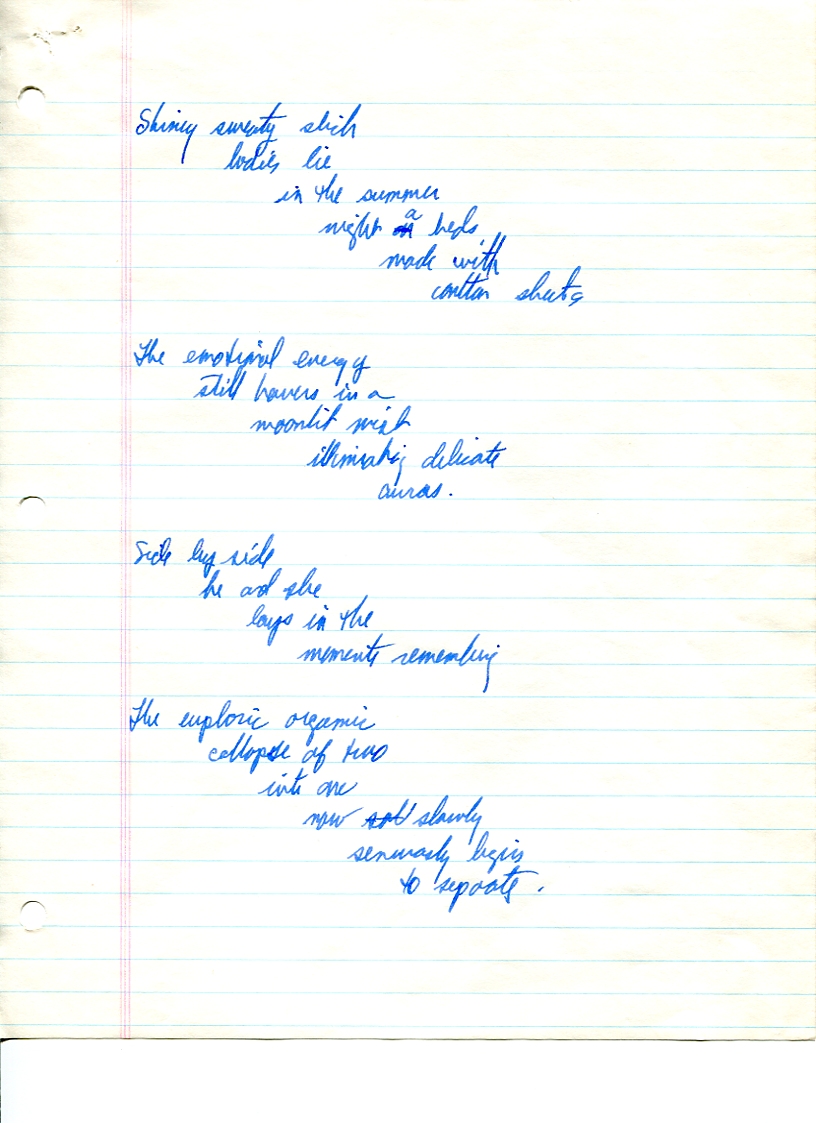 Shiney sweaty slick
bodies lie
in the summer
night a beds
made with
cotton sheets
The emotional energy
still hovers in a
moonlit mist
illiminating delicate
auras.
Side by side
he and she
lays in the
moments remembering
The euphoric organic
collapse of two
into one
now slowly
sensuously begins
to separate.